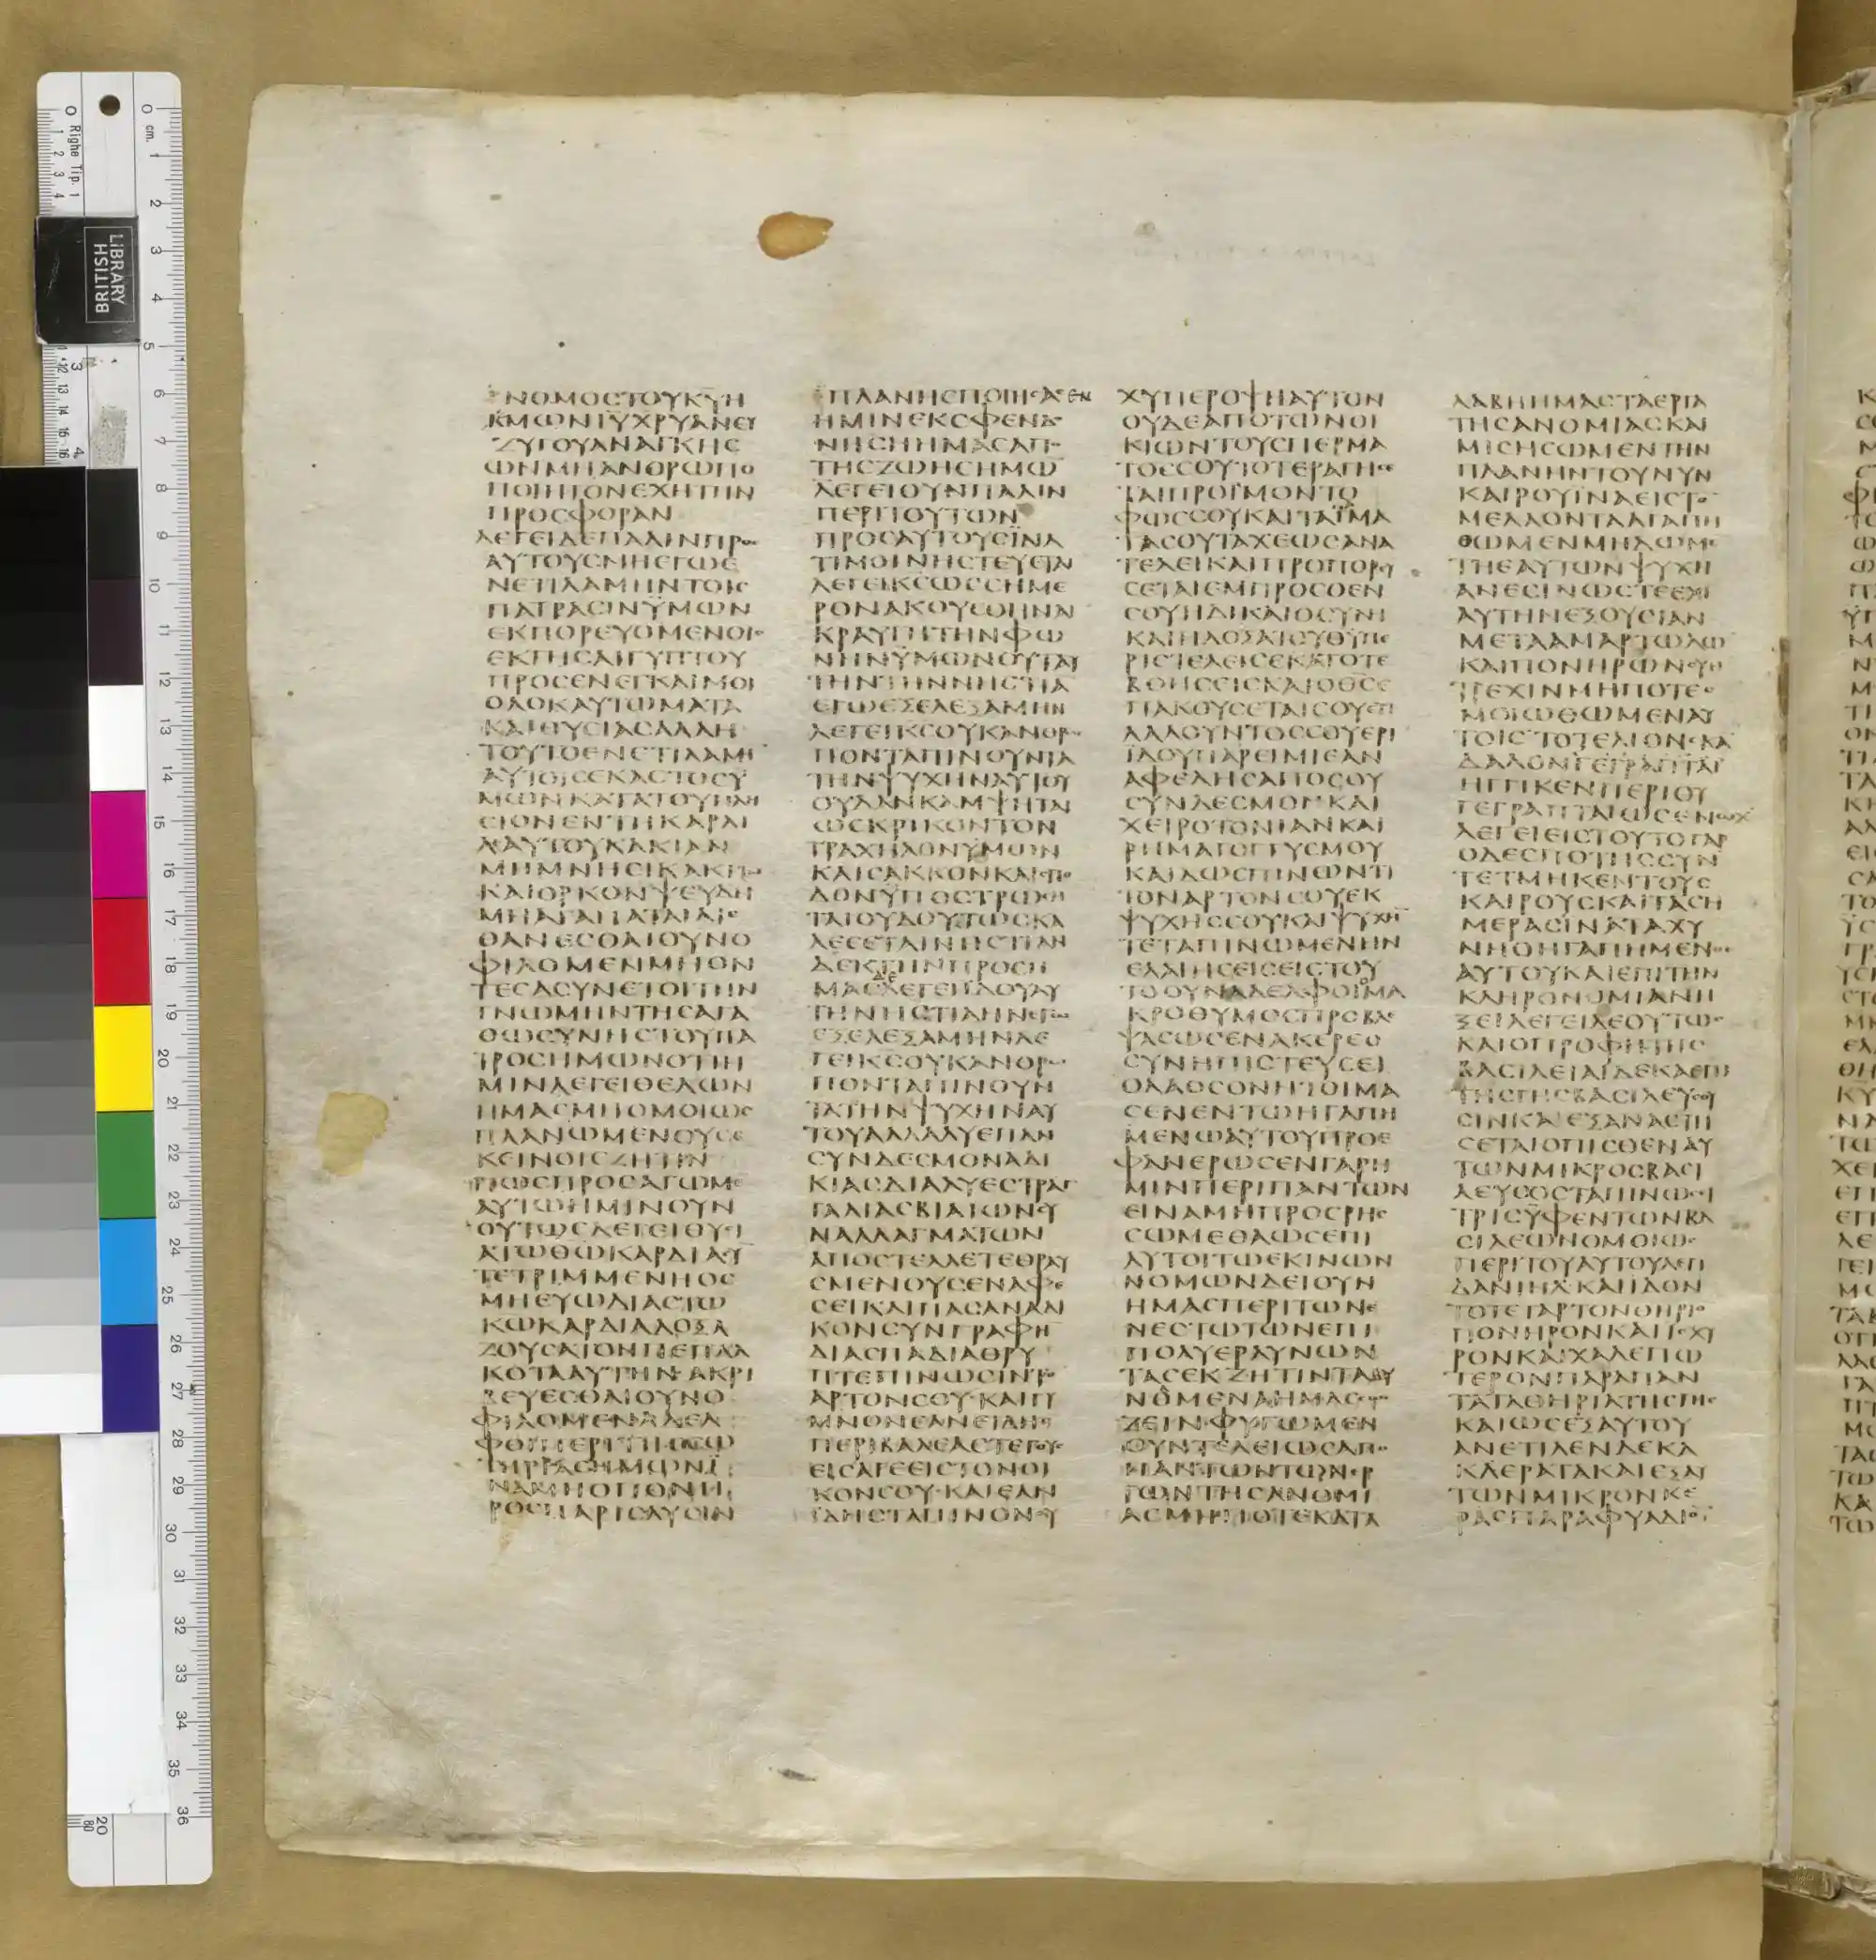 ΝΟΜΟΣΤΟΥΚΥΗ
ΜΩΝΙΥΧΡΥΑΝΕΥ
ΖΥΓΟΥΑΝΑΓΚΗΣ
ΩΝΜΗΑΝΘΡΩΠΟ
ΠΟΙΗΤΟΝΕΧΗΤΗΝ
ΠΡΟΣΦΟΡΑΝ
ΛΕΓΕΙΔΕΠΑΛΙΝΠΡΟΣ
ΑΥΤΟΥΣΜΗΕΓΩΕ
ΝΕΤΙΛΑΜΗΝΤΟΙΣ
ΠΑΤΡΑΣΙΝΫΜΩΝ
ΕΚΠΟΡΕΥΟΜΕΝΟΙΣ
ΕΚΓΗΣΑΙΓΥΠΤΟΥ
ΠΡΟΣΕΝΕΓΚΑΙΜΟΙ
ΟΛΟΚΑΥΤΩΜΑΤΑ
ΚΑΙΘΥΣΙΑΣΑΛΛΗ
ΤΟΥΤΟΕΝΕΤΙΛΑΜΗ
ΑΥΤΟΙΣΕΚΑΣΤΟΣΫ
ΜΩΝΚΑΤΑΤΟΥΠΛΗ
ΣΙΟΝΕΝΤΗΚΑΡΔΙ
ΑΑΥΤΟΥΚΑΚΙΑΝ
ΜΗΜΝΗΣΙΚΑΚΙΤΩ
ΚΑΙΟΡΚΟΝΨΕΥΔΗ
ΜΗΑΓΑΠΑΤΑΙΑΙΣ
ΘΑΝΕΣΘΑΙΟΥΝΟ
ΦΙΛΟΜΕΝΜΗΟΝ
ΤΕΣΑΣΥΝΕΤΟΙΤΗΝ
ΓΝΩΜΗΝΤΗΣΑΓΑ
ΘΩΣΥΝΗΣΤΟΥΠΑ
ΤΡΟΣΗΜΩΝΟΤΙΗ
ΜΙΝΛΕΓΕΙΘΕΛΩΝ
ΗΜΑΣΜΗΟΜΟΙΩΣ
ΠΛΑΝΩΜΕΝΟΥΣΕ
ΚΕΙΝΟΙΣΖΗΤΙΝ
ΠΩΣΠΡΟΣΑΓΩΜΕ
ΑΥΤΩΗΜΙΝΟΥΝ
ΟΥΤΩΣΛΕΓΕΙΘΥΣΙ
ΑΤΩΘΩΚΑΡΔΙΑΣΥ
ΤΕΤΡΙΜΜΕΝΗΟΣ
ΜΗΕΥΩΔΙΑΣΤΩ
ΚΩΚΑΡΔΙΑΔΟΞΑ
ΖΟΥΣΑΤΟΝΠΕΠΛΑ
ΚΟΤΑΑΥΤΗΝΑΚΡΙ
ΒΕΥΕΣΘΑΙΟΥΝΟ
ΦΙΛΟΜΕΝΑΔΕΛ
ΦΟΙΠΕΡΙΤΗΣΣΩ
ΤΗΡΙΑΣΗΜΩΝΪ
ΝΑΜΗΟΠΟΝΗ
ΡΟΣΠΑΡΙΣΔΥΣΙΝ
ΠΛΑΝΗΣΠΟΙΗΣΑΣΕΝ
ΗΜΙΝΕΚΣΦΕΝΔΟ
ΝΗΣΗΗΜΑΣΑΠΟ
ΤΗΣΖΩΗΣΗΜΩ
ΛΕΓΕΙΟΥΝΠΑΛΙΝ
ΠΕΡΙΤΟΥΤΩΝ
ΠΡΟΣΑΥΤΟΥΣΪΝΑ
ΤΙΜΟΙΝΗΣΤΕΥΕΤΑΙ
ΛΕΓΕΙΚΣΩΣΣΗΜΕ
ΡΟΝΑΚΟΥΣΘΗΝΑΙ
ΚΡΑΥΓΗΤΗΝΦΩ
ΝΗΝΫΜΩΝΟΥΤΑΥ
ΤΗΝΤΗΝΝΗΣΤΙΑ
ΕΓΩΕΞΕΛΕΞΑΜΗΝ
ΛΕΓΕΙΚΣΟΥΚΑΝΘΡΩ
ΠΟΝΤΑΠΙΝΟΥΝΤΑ
ΤΗΝΨΥΧΗΝΑΥΤΟΥ
ΟΥΔΑΝΚΑΜΨΗΤΑΙ
ΩΣΚΡΙΚΟΝΤΟΝ
ΤΡΑΧΗΛΟΝΫΜΩΝ
ΚΑΙΣΑΚΚΟΝΚΑΙΣΠΟ
ΔΟΝΫΠΟΣΤΡΩΣΗ
ΤΑΙΟΥΔΟΥΤΩΣΚΑ
ΛΕΣΕΤΑΙΝΗΣΤΙΑΝ
ΔΕΚΤΗΝΠΡΟΣΗ
ΜΑΣΔΕΛΕΓΕΙΪΔΟΥΑΥ
ΤΗΝΗΣΤΙΑΗΝΕΓΩ
ΕΞΕΛΕΞΑΜΗΝΛΕ
ΓΕΙΚΣΟΥΚΑΝΘΡΩ
ΠΟΝΤΑΠΙΝΟΥΝ
ΤΑΤΗΝΨΥΧΗΝΑΥ
ΤΟΥΑΛΛΑΛΥΕΠΑΝ
ΣΥΝΔΕΣΜΟΝΑΔΙ
ΚΙΑΣΔΙΑΛΥΕΣΤΡΑΓ
ΓΑΛΙΑΣΒΙΑΙΩΝΣΥ
ΝΑΛΛΑΓΜΑΤΩΝ
ΑΠΟΣΤΕΛΛΕΤΕΘΡΑΥ
ΣΜΕΝΟΥΣΕΝΑΦΕ
ΣΕΙΚΑΙΠΑΣΑΝΑΔΙ
ΚΟΝΣΥΝΓΡΑΦΗ
ΔΙΑΣΠΑΔΙΑΘΡΥ
ΠΤΕΠΙΝΩΣΙΝΤΟ
ΑΡΤΟΝΣΟΥΚΑΙΓΥ
ΜΝΟΝΕΑΝΕΙΔΗΣ
ΠΕΡΙΒΑΛΕΑΣΤΕΓΟΥΣ
ΕΙΣΑΓΕΕΙΣΤΟΝΟΙ
ΚΟΝΣΟΥΚΑΙΕΑΝ
ΙΔΗΣΤΑΠΙΝΟΝΟΥ
ΧΥΠΕΡΟΨΗΑΥΤΟΝ
ΟΥΔΕΑΠΟΤΩΝΟΙ
ΚΙΩΝΤΟΥΣΠΕΡΜΑ
ΤΟΣΣΟΥΤΟΤΕΡΑΓΗΣΕ
ΤΑΙΠΡΟΪΜΟΝΤΟ
ΦΩΣΣΟΥΚΑΙΤΑΪΜΑ
ΤΑΣΟΥΤΑΧΕΩΣΑΝΑ
ΤΕΛΕΙΚΑΙΠΡΟΠΟΡΕΥ
ΣΕΤΑΙΕΜΠΡΟΣΘΕΝ
ΣΟΥΗΔΙΚΑΙΟΣΥΝΗ
ΚΑΙΗΔΟΞΑΤΟΥΘΥΠΕ
ΡΙΣΤΕΛΕΙΣΕΚΑΙΤΟΤΕ
ΒΟΗΣΕΙΣΚΑΙΟΘΣΕ
ΠΑΚΟΥΣΕΤΑΙΣΟΥΕΤΙ
ΛΑΛΟΥΝΤΟΣΣΟΥΕΡΙ
ΪΔΟΥΠΑΡΕΙΜΙΕΑΝ
ΑΦΕΛΗΣΑΠΟΣΟΥ
ΣΥΝΔΕΣΜΟΝΚΑΙ
ΧΕΙΡΟΤΟΝΙΑΝΚΑΙ
ΡΗΜΑΓΟΓΓΥΣΜΟΥ
ΚΑΙΔΩΣΠΙΝΩΝΤΙ
ΤΟΝΑΡΤΟΝΣΟΥΕΚ
ΨΥΧΗΣΣΟΥΚΑΙΨΥΧΗ
ΤΕΤΑΠΙΝΩΜΕΝΗΝ
ΕΛΑΙΗΣΕΙΣΕΙΣΤΟΥ
ΤΟΟΥΝΑΔΕΛΦΟΙΟΜΑ
ΚΡΟΘΥΜΟΣΠΡΟΒΛΕ
ΨΑΣΩΣΕΝΑΚΕΡΕΟ
ΣΥΝΗΠΙΣΤΕΥΣΕΙ
ΟΛΑΟΣΟΝΗΤΟΙΜΑ
ΣΕΝΕΝΤΩΗΓΑΠΗ
ΜΕΝΩΑΥΤΟΥΠΡΟΕ
ΦΑΝΕΡΩΣΕΝΓΑΡΗ
ΜΙΝΠΕΡΙΠΑΝΤΩΝ
ΕΙΝΑΜΗΠΡΟΣΡΗΣ
ΣΩΜΕΘΑΩΣΕΠΗ
ΛΥΤΟΙΤΩΕΚΙΝΩΝ
ΝΟΜΩΝΔΕΙΟΥΝ
ΗΜΑΣΠΕΡΙΤΩΝΕ
ΝΕΣΤΩΤΩΝΕΠΙ
ΠΟΛΥΕΡΑΥΝΩΝ
ΤΑΣΕΚΖΗΤΙΝΤΑΔΥ
ΝΟΜΕΝΑΗΜΑΣΣΩ
ΖΕΙΝΦΥΓΩΜΕΝ
ΟΥΝΤΕΛΕΙΩΣΑΠΟ
ΠΑΝΤΩΝΤΩΝΕΡ
ΓΩΝΤΗΣΑΝΟΜΙ
ΑΣΜΗΠΟΤΕΚΑΤΑ
ΛΑΒΗΗΜΑΣΤΑΕΡΓΑ
ΤΗΣΑΝΟΜΙΑΣΚΑΙ
ΜΙΣΗΣΩΜΕΝΤΗΝ
ΠΛΑΝΗΝΤΟΥΝΥΝ
ΚΑΙΡΟΥΪΝΑΕΙΣΤΟ
ΜΕΛΛΟΝΤΑΑΓΑΠΗ
ΘΩΜΕΝΜΗΔΩΜΕ
ΤΗΕΑΥΤΩΝΨΥΧΗ
ΑΝΕΣΙΝΩΣΤΕΕΧΙ
ΑΥΤΗΝΕΞΟΥΣΙΑΝ
ΜΕΤΑΑΜΑΡΤΩΛΩ
ΚΑΙΠΟΝΗΡΩΝΣΥ
ΤΡΕΧΙΝΜΗΠΟΤΕΟ
ΜΟΙΩΘΩΜΕΝΑΥ
ΤΟΙΣΤΟΤΕΛΙΟΝΣΚΑ
ΔΑΛΟΝΓΕΓΡΑΠΤΑΙ
ΗΓΓΙΚΕΝΠΕΡΙΟΥ
ΓΕΓΡΑΠΤΑΙΩΣΕΝΩΧ
ΛΕΓΕΙΕΙΣΤΟΥΤΟΓΑΡ
ΟΔΕΣΠΟΤΗΣΣΥΝ
ΤΕΤΜΗΚΕΝΤΟΥΣ
ΚΑΙΡΟΥΣΚΑΙΤΑΣΗ
ΜΕΡΑΣΙΝΑΤΑΧΥ
ΝΗΟΗΓΑΠΗΜΕΝΟΣ
ΑΥΤΟΥΚΑΙΕΠΙΤΗΝ
ΚΛΗΡΟΝΟΜΙΑΝΗ
ΞΕΙΛΕΓΕΙΔΕΟΥΤΩΣ
ΚΑΙΟΠΡΟΦΗΤΗΣ
ΒΑΣΙΛΕΙΑΙΔΕΚΑΕΠΙ
ΤΗΣΓΗΣΒΑΣΙΛΕΥΣΟΥ
ΣΙΝΚΑΙΕΞΑΝΑΣΤΗ
ΣΕΤΑΙΟΠΙΣΘΕΝΑΥ
ΤΩΝΜΙΚΡΟΣΒΑΣΙ
ΛΕΥΣΟΣΤΑΠΙΝΩΣΙ
ΤΡΙΣΫΦΕΝΤΩΝΒΑ
ΣΙΛΕΩΝΟΜΟΙΩΣ
ΠΕΡΙΤΟΥΑΥΤΟΥΛΕΓΙ
ΔΑΝΙΗΛΚΑΙΪΔΟΝ
ΤΟΤΕΓΑΡΤΟΝΘΗΡΙΟ
ΠΟΝΗΡΟΝΚΑΙΪΣΧΥ
ΡΟΝΚΑΙΧΑΛΕΠΩ
ΤΕΡΟΝΠΑΡΑΠΑΝ
ΤΑΤΑΘΗΡΙΑΤΗΣΓΗΣ
ΚΑΙΩΣΕΞΑΥΤΟΥ
ΑΝΕΤΙΛΕΝΔΕΚΑ
ΚΑΕΡΑΤΑΚΑΙΕΞΑΥ
ΤΩΝΜΙΚΡΟΝΚΕ
ΡΑΣΠΑΡΑΦΥΑΔΙΟ
BRITISH
LIBRARY